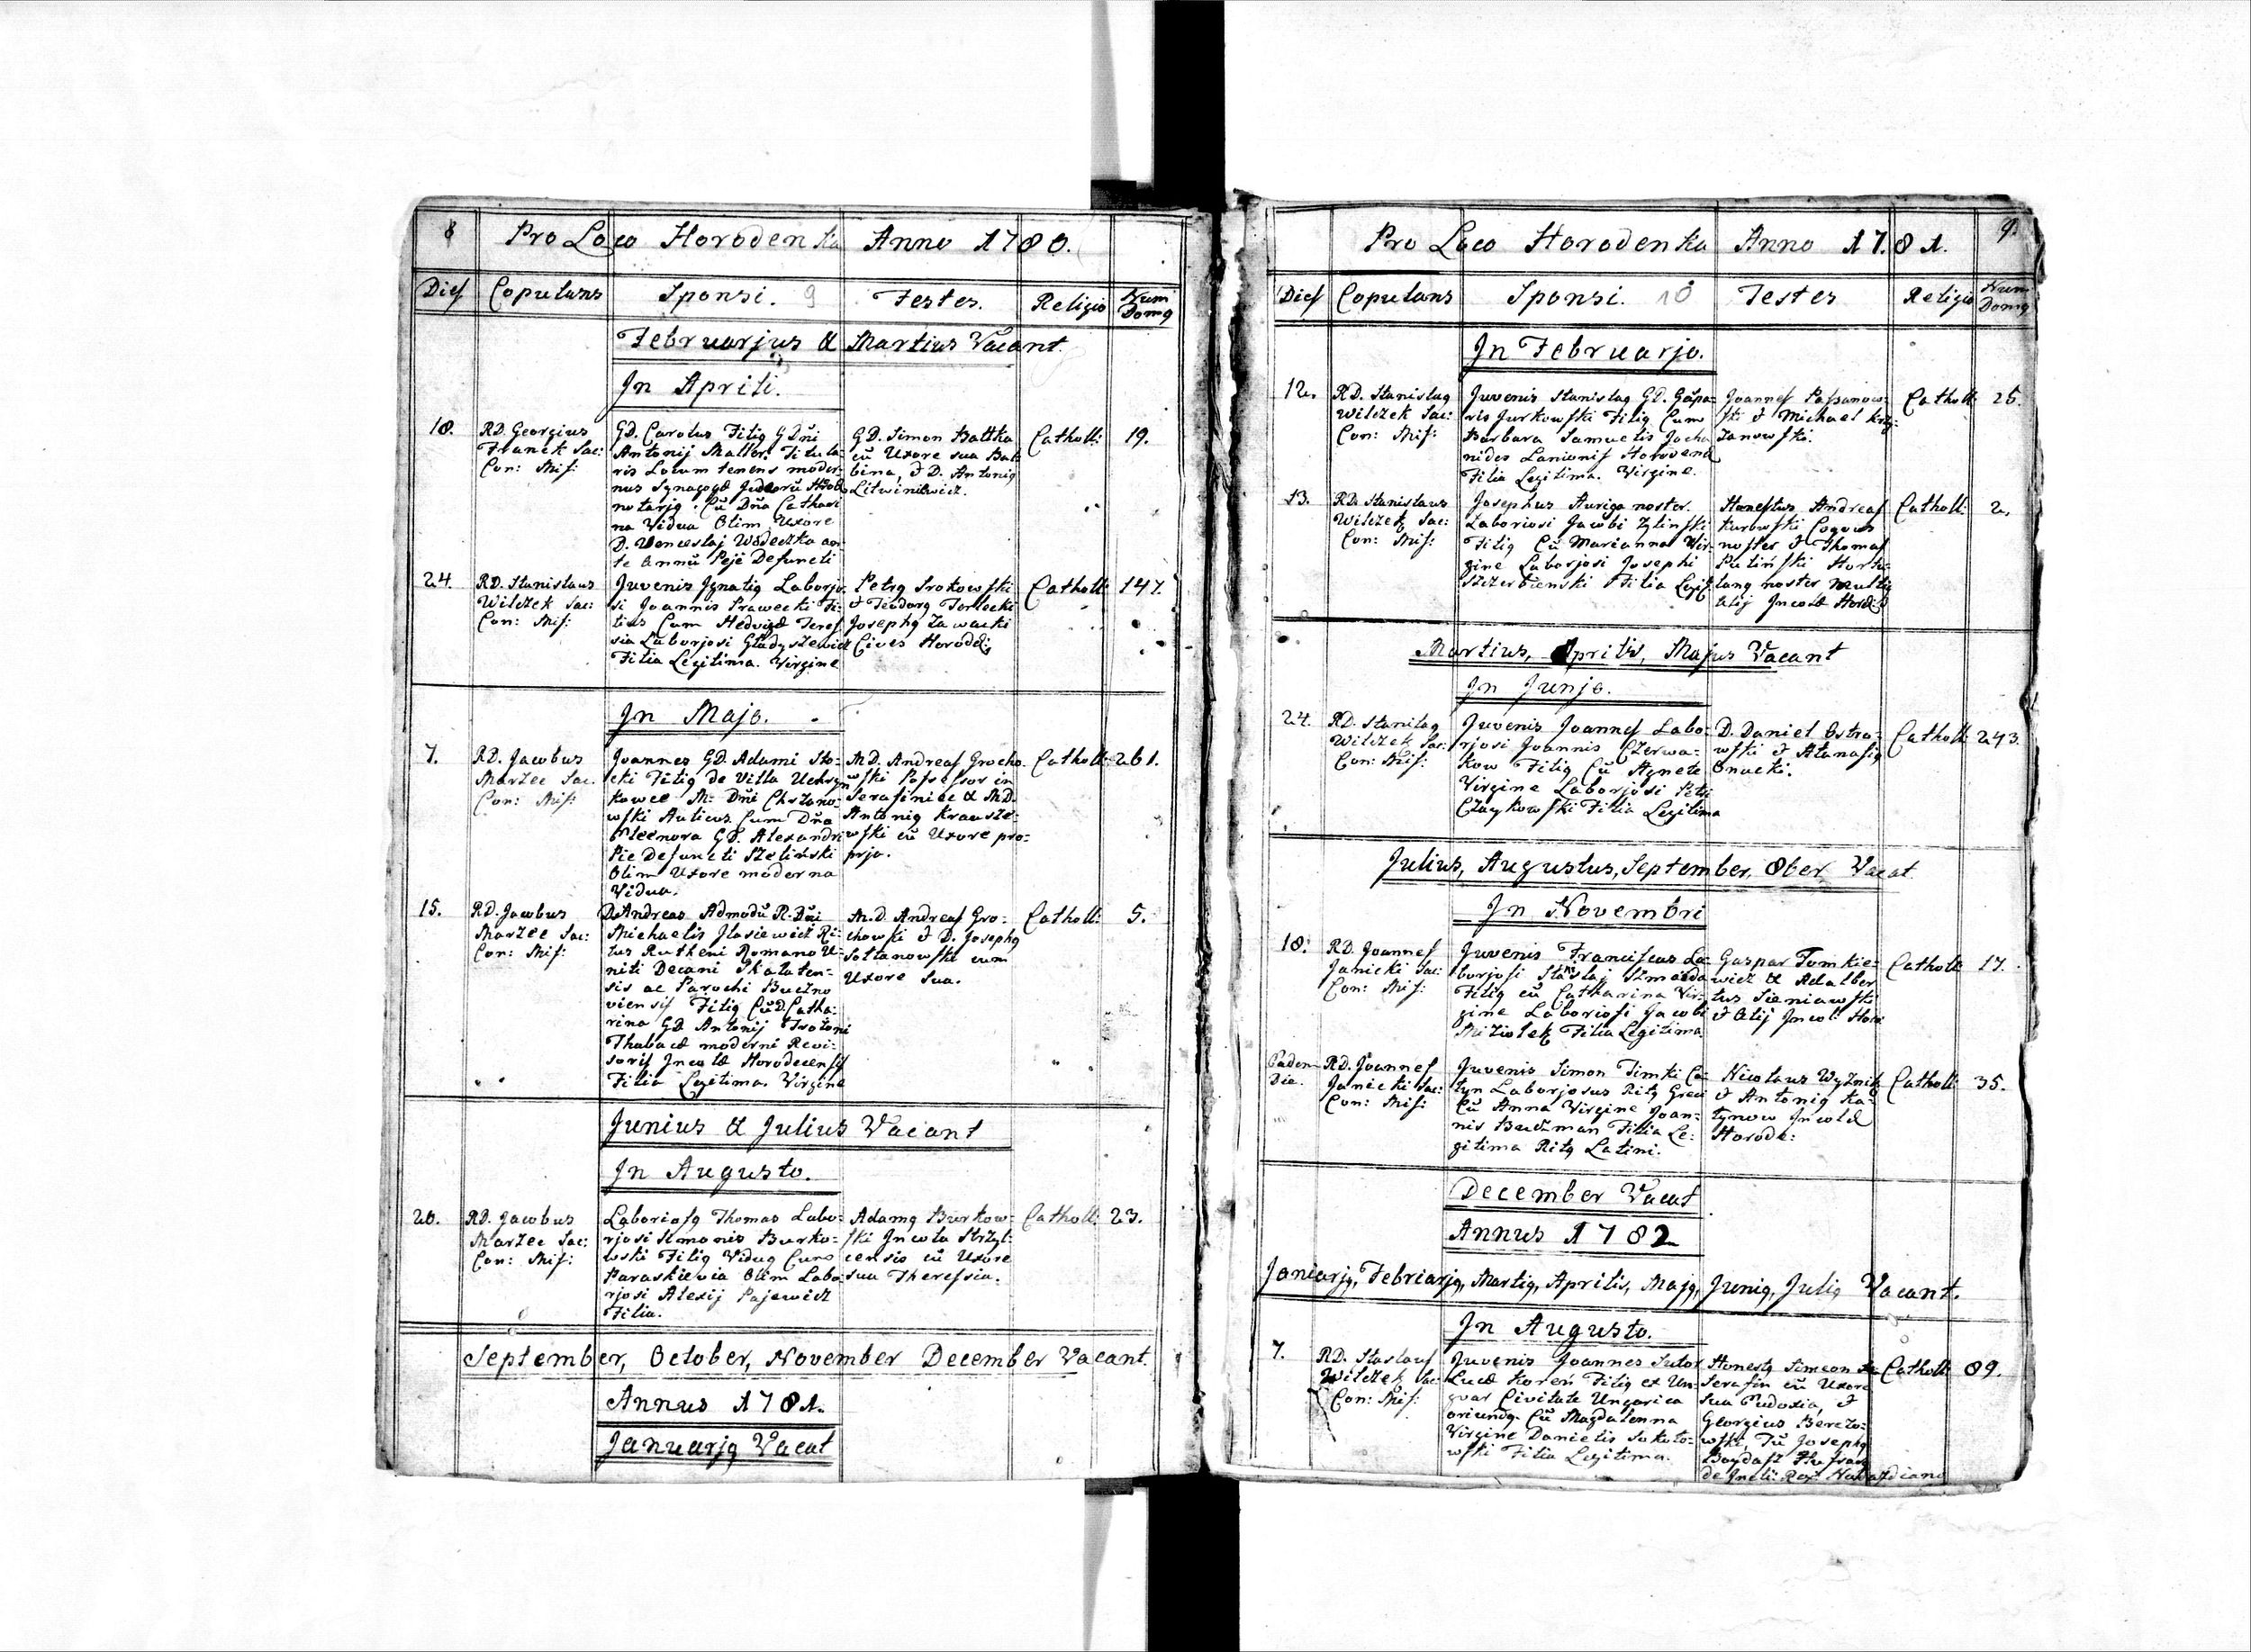 8 Pro Loco Horodenka Anno 1780.
Dies Copulans Sponsi. 9 Testes. Religio Num Domq
Februarjus & Martius Vacant.
Jn Aprili.
18.
RD. Georgius
Franek Sac:
Con: Mis:
GD. Carolus Filiq GDni
Antonij Maller Titula-
ris Locum tenens moder-
nus Synagogæ Judeorũ
notarjq. Cũ Dña Cathari
na Vidua Olim Uxore
D. Venceslaj Wodeczka an
te Annũ Pejè Defuncti
GD. Simon Battka
cũ Uxore sua Bal
bina, & D. Antoniq
Litwinkiewicz.
Catholi:
19.
24.
RD. Stanislaus
Wilczek Sac:
Con: Mis:
Juvenis Jgnatiq Laborjo
si Joannis Prawecki Fi-
lius Cum Hedvigæ Teres
sia Laborjosi Gładyszewicz
Filia Legitima. Virgine
Petrq Srokowski
& Teodorq Terlecki
Josephq Zawacki
Cives Horodd:
Catholi:
147.
Jn Majo.
7.
RD. Jacobus
Marzec Sac.
Con: Mis:
Joannes GD. Adami Sto-
cki Filiq de Villa
kowce M: Dñi Chrzano-
wski Aulicus Cum Dña
Eleonora GD. Alexandri
Pie Defuncti Szeliński
Olim Uxore moderna
Vidua.
M.D. Andreas Grocho
wski Possessor in
Serafinice & M.D.
Antoniq Krausze-
wski cũ Uxore pro-
prja.
Catholi:
261.
15.
RD. Jacobus
Marzec Sac:
Con: Mis:
D. Andreas Admodũ R. Dñi
Michaelis Jlasiewicz Ri-
tus Rutheni Romano U-
niti Decani Skalaten-
sis ac Parochi Buczno
viensis Filiq Cũ D. Catha-
rina GD. Antonij
Thabacæ moderni Revi-
soris Jncolæ Horodecensis
Filia Legitima. Virgine
M.D. Andreas Gro-
chowski & D. Josephq
Sołtanowski cum
Uxore Sua.
Catholi:
5.
Junius & Julius Vacant
Jn Augusto.
20.
RD. Jacobus
Marzec Sac:
Con: Mis:
Laboriosq Thomas Labo-
rjosi Simonis Burko-
wski Filiq Viduq Cum
Paraskievia Olim Labo-
rjosi Alexij Pajewicz
Filia.
Adamq Burkow-
ski Jncola Strzyl-
censis cũ Uxore
sua Theressia.
Catholi:
23.
September, October, November December Vacant.
Annus 1781.
Januarjq Vacat
Pro Loco Horodenka Anno 1781. 9.
Dies Copulans Sponsi. 10 Testes Religio Num Domq
Jn Februarjo.
12.
RD. Stanislaq
Wilczek Sac:
Con: Mis:
Juvenis Stanislaq GD. Gaspa-
ris Jurkowski Filiq Cum
Barbara Samuelis Jocha
nides Lanionis
Filia Legitima. Virgine.
Joannes Passanow-
ski & Michael Krzy-
zanowski.
Catholi:
25.
13.
RD. Stanislaus
Wilczek Sac:
Con: Mis:
Josephus Auriga noster.
Laboriosi Jacobi Zylinski
Filiq Cũ Marianna Vir-
gine Laborjosi Josephi
Szczerbienski Filia Legit.
Honestus Andreas
Kurowski Coquus
noster & Thomas
Puliński Hortu-
lanq noster multiq
alij Jncolæ Horod:
Catholi:
2.
Martius, Aprilis, Majus Vacant
Jn Junjo.
24.
RD. Stanilaq
Wilczek Sac:
Con: Mis:
Juvenis Joannes Labo-
rjosi Joannis Czerwa-
kow Filiq Cũ Agnete
Virgine Laborjosi Petri
Czaykowski Filia Legitima
D. Daniel Ostro-
wski & Atanasiq
Onacki.
Catholi:
243.
Julius, Augustus, September, 8ber Vacat
Jn Novembri
18.
RD. Joannes
Janicki Sac:
Con: Mis:
Juvenis Franciscus La-
borjosi Stanislaj Szmayda
Filiq cũ Catharina Vir-
gine Laboriosi Jacobi
Miziolek Filia Legitima.
Gaspar Tomkie-
wicz & Adalber
tus Sieniawski
& Alij Jncol: Horo
Catholi:
17.
Eadem
Die.
RD. Joannes
Janicki Sac:
Con: Mis:
Juvenis Simon Timki Ca
tyn Laborjosus Ritq Greci
Cũ Anna Virgine Joan-
nis Budzman Filia Le-
gitima Ritq Latini.
Nicolaus Wyznik
& Antoniq Ka-
tynow Jncolæ
Horode:
Catholi:
35.
December Vacat
Annus 1782
Janiarjq, Febriarjq, Martiq, Aprilis, Majq, Juniq, Juliq Vacant.
Jn Augusto.
7.
RD. Staslaus
Wilczek Sac:
Con: Mis:
Juvenis Joannes Sutor
Lucæ Koreń Filiq ex Un-
gvar Civitate Ungarica
oriundq. Cũ Magdalenna
Virgine Danielis Sokoło-
wski Filia Legitima.
Honestq Simeon
Serafin cũ Uxore
sua Eudoxia, &
Georgius Berezo-
wski, Tũ Josephq
Catholi:
89.